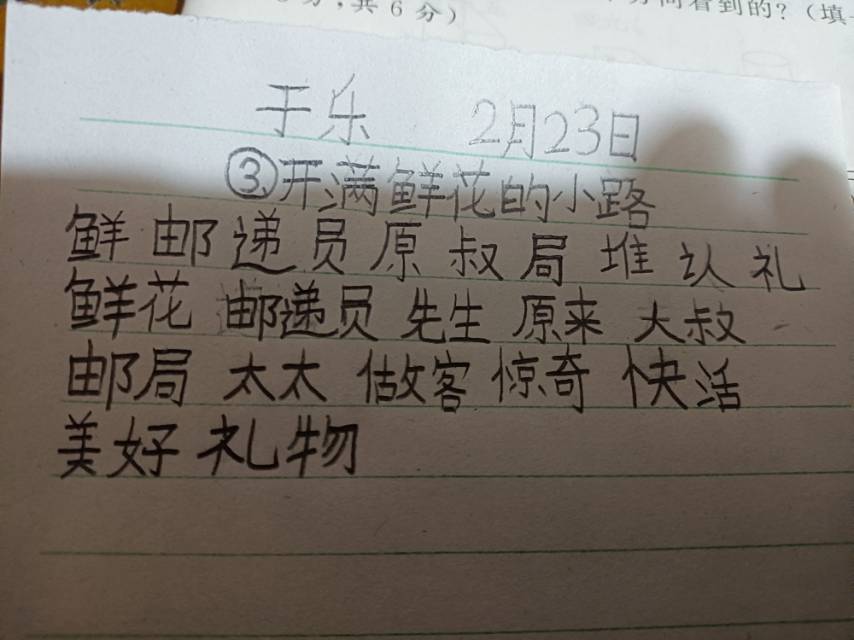 分，共6分）
看到的？（填
于乐 2月23日
③开满鲜花的小路
鲜 邮 递 员 原 叔 局 堆 认 礼
鲜花 邮递员 先生 原来 大叔
邮局 太太 做客 惊奇 快活
美好 礼物